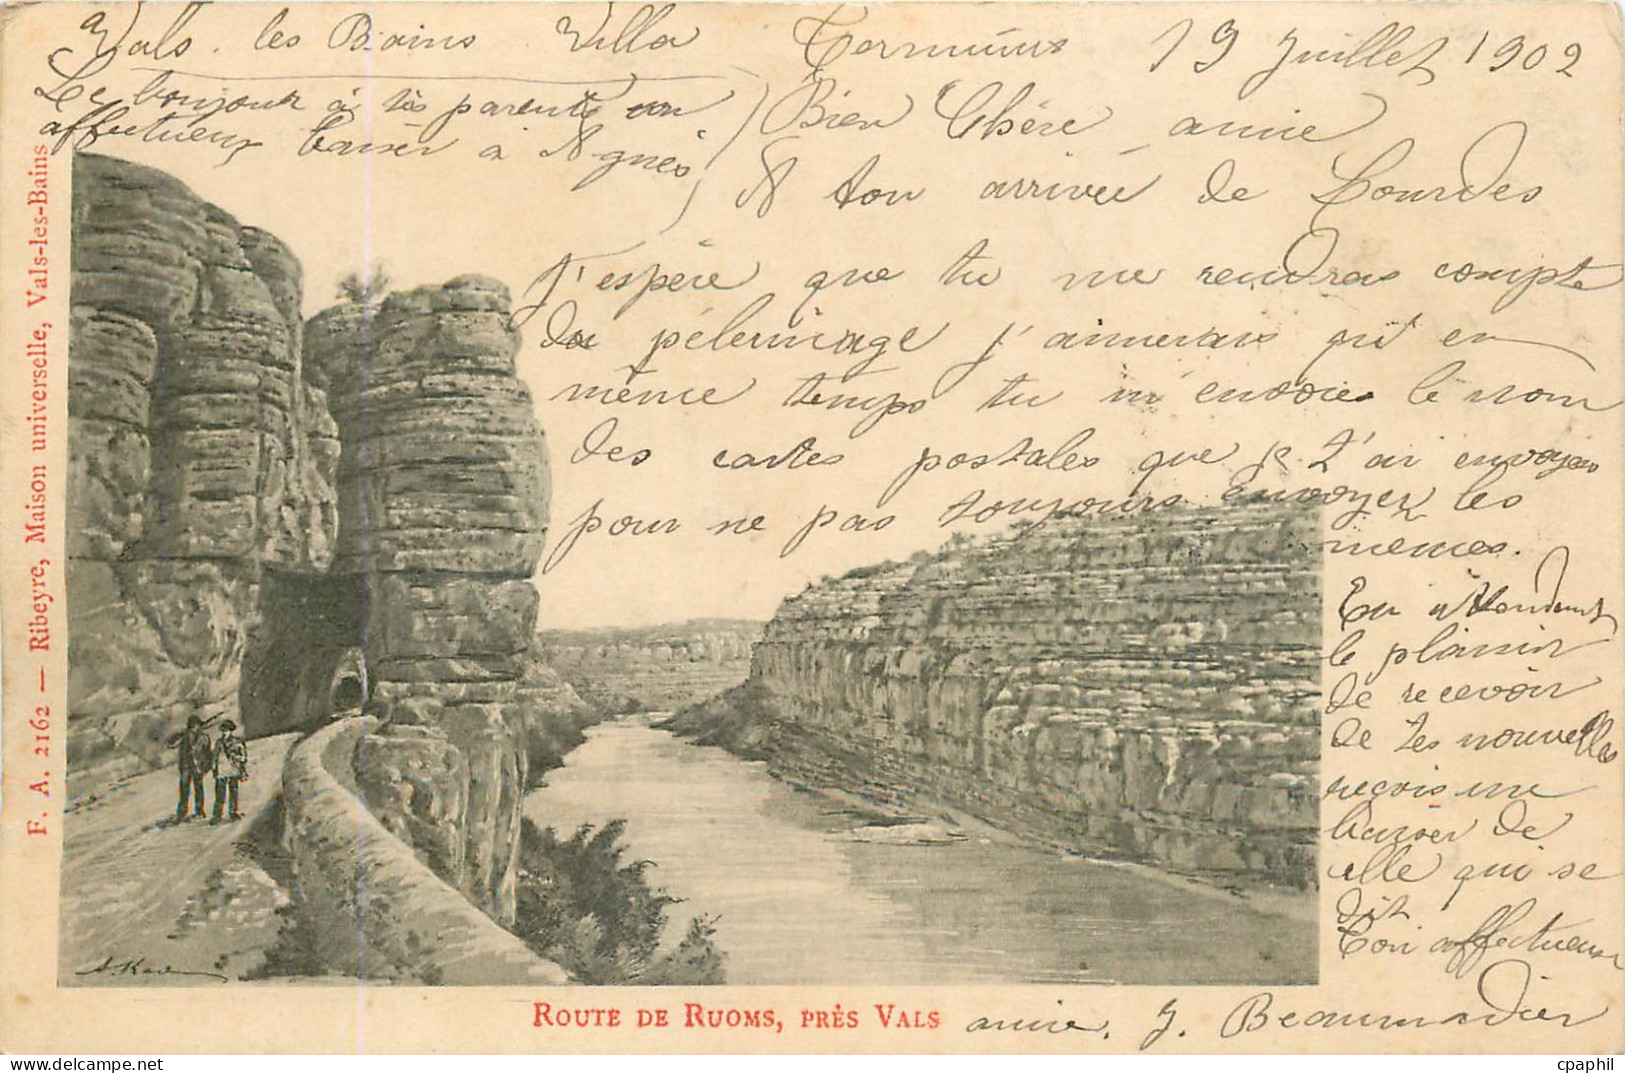 Vals. les Bains Villa Terminus 19 Juillet 1902
Le bonjour à tes parents un
affectueux baiser à Agnès
Bien Chère amie
A ton arrivée de Lourdes
J'espère que tu me rendras compte
du pélerinage j'aimerais qu'en
même temps tu m'envoies le nom
des cartes postales que je t'ai envoyées
pour ne pas toujours envoyer les
mêmes.
En attendant
le plaisir
de recevoir
de tes nouvelles
reçois une
baiser de
elle qui se
dit
Ton affectueuse
amie. J. Beaumadier
F. A. 2162 — Ribeyre, Maison universelle, Vals-les-Bains
ROUTE DE RUOMS, PRÈS VALS
cpaphil